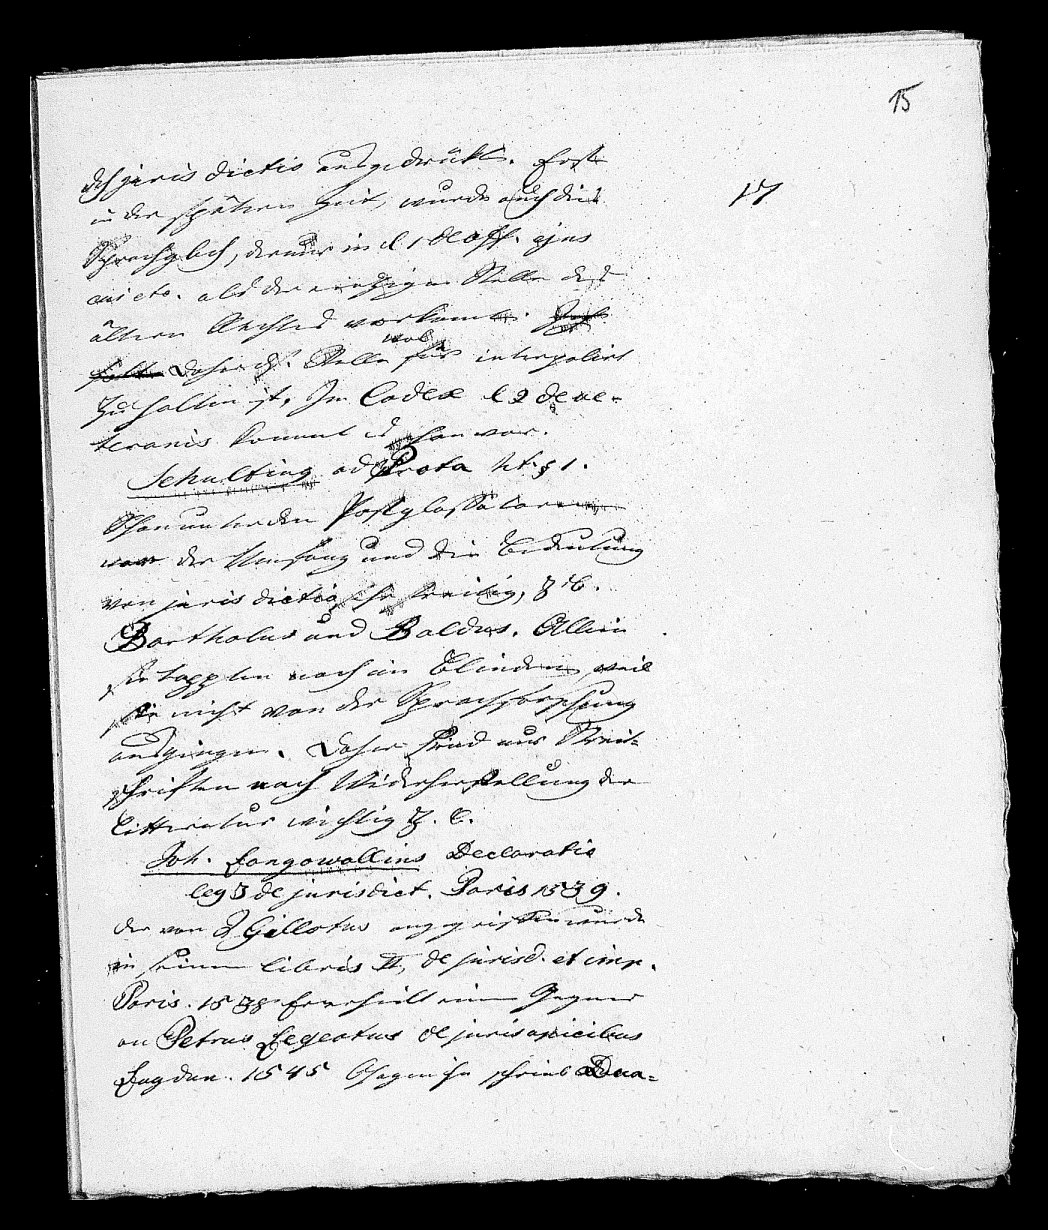 15
17
juris dictio ausgedrükt. Erst
in der spätern Zeit, wurde auch dies
Sprachgbch, denn in l 1 de off. ejus
cui etc. als der einzigen Stelle des
ältern Rechtes vorkomt.
wol
daher ds. Stelle für interpolirt
zu halten ist. Im Codex l 2 de ve-
teranis kommt es schon vor.
Schulting ad Prota h.t. § 1.
Schon unter den Postglossatoren
war der Umfang und die Bedeutung
von juris dictio sehr streitig, z. B.
Bartholus und Baldus. Allein
sie tappten noch im Blinden, weil
sie nicht von der Sprachforschung
ausgingen. Daher sind nur Streit-
schriften nach Widerherstellung der
Litteratur wichtig z. B.
Joh. Longowallius Declaratio
leg 3 de jurisdict. Paris 1539.
der von J Gillotus angegriffen wurde
in seinen libris II, de jurisd. et imp.
Paris. 1538 Er erhielt einen Gegner
an Petrus Legeatus de juris apicibus
Lugdun. 1545 Gegen ihn schrieb Dua-